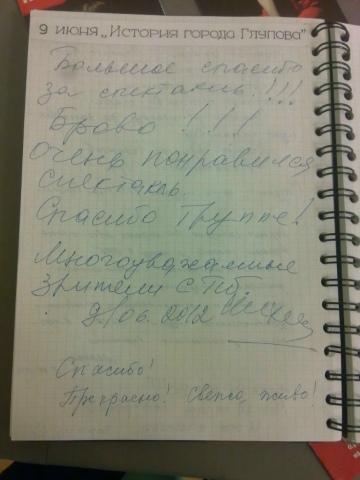 9 июня „История города Глупова"
Большое спасибо
за спектакль!!!
Браво!!!
Очень понравился
спектакль.
Спасибо Труппе!
Многоуважаемые
зрители С.Пб.
9/06.2012
Спасибо!
Прекрасно! Свежо, живо!